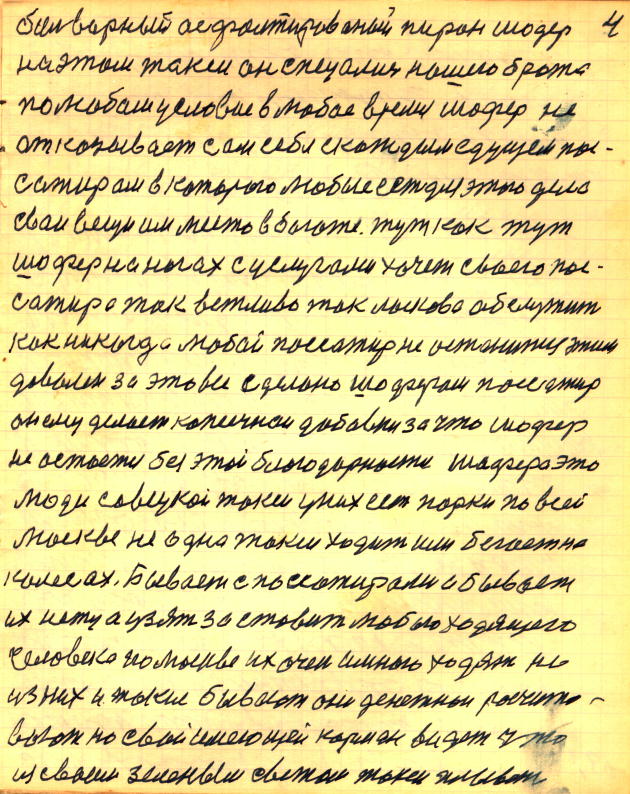 4
бульварный асфолтированай пиран шодер
на этом такси он специалист нашего брата
по любом условие в любое время шофер не
отказывает сам себя с каждым едущем пос-
сажирам в которого любые есть для этого дела
сваи вещи им место в богаже. тут как тут
шофер на ногах с услугами хочет своего пос-
сатира так ветливо так ласкова обслужит
как некогда любой поссатир не останится этим
доволен за это все сделано шоферам поссатир
он ему делает копеечнаи добавки за что шофер
не остоется без этой благодарности шафера это
люди совецкой такси у них ест парки по всей
Москве не одна такси ходит или бегает на
колесах. Бывает с поссатирами а бывает
их нету а узят заставит любою ходящего
человека по москве их очен имного ходят но
из них и такие бывают они денежнаи росчиты-
вают на свой имеющей карман видет что
из своем зеленым светом такси плывет